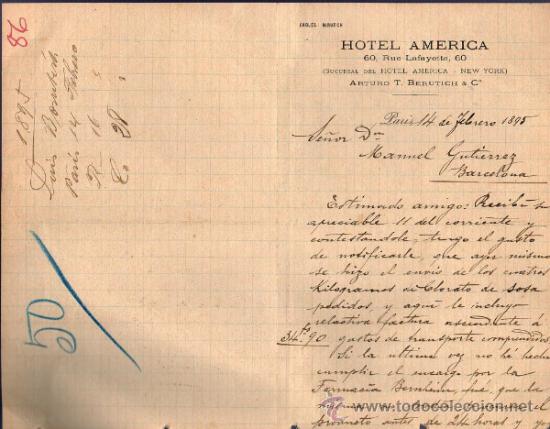 86
1895
Luis Berutich
París 14 Febrero
R. 16 "
C. 20 "
50
CABLES: BERUTICH
HOTEL AMERICA
60, Rue Lafayette, 60
(SUCURSAL DEL HOTEL AMERICA - NEW YORK)
ARTURO T. BERUTICH & Cº
París 14 de Febrero 1895
Señor Dn
Manuel Gutierrez
Barcelona
Estimado amigo: Recibí su
apreciable 11 del corriente y
contestandole, tengo el gusto
de notificarle, que ayer mismo
se hizo el envío de los cuatro
Kilogramos de Clorato de Sosa
pedidos, y aquí le incluyo
relactiva factura ascendente á
34 fs 90 gastos de transporte comprendidos
Si la ultima vez no hé hecho
cumplir el encargo por la
Farmacia Bernheim, fué, que la
producto antes de 24 horas y yo
www.todocoleccion.net